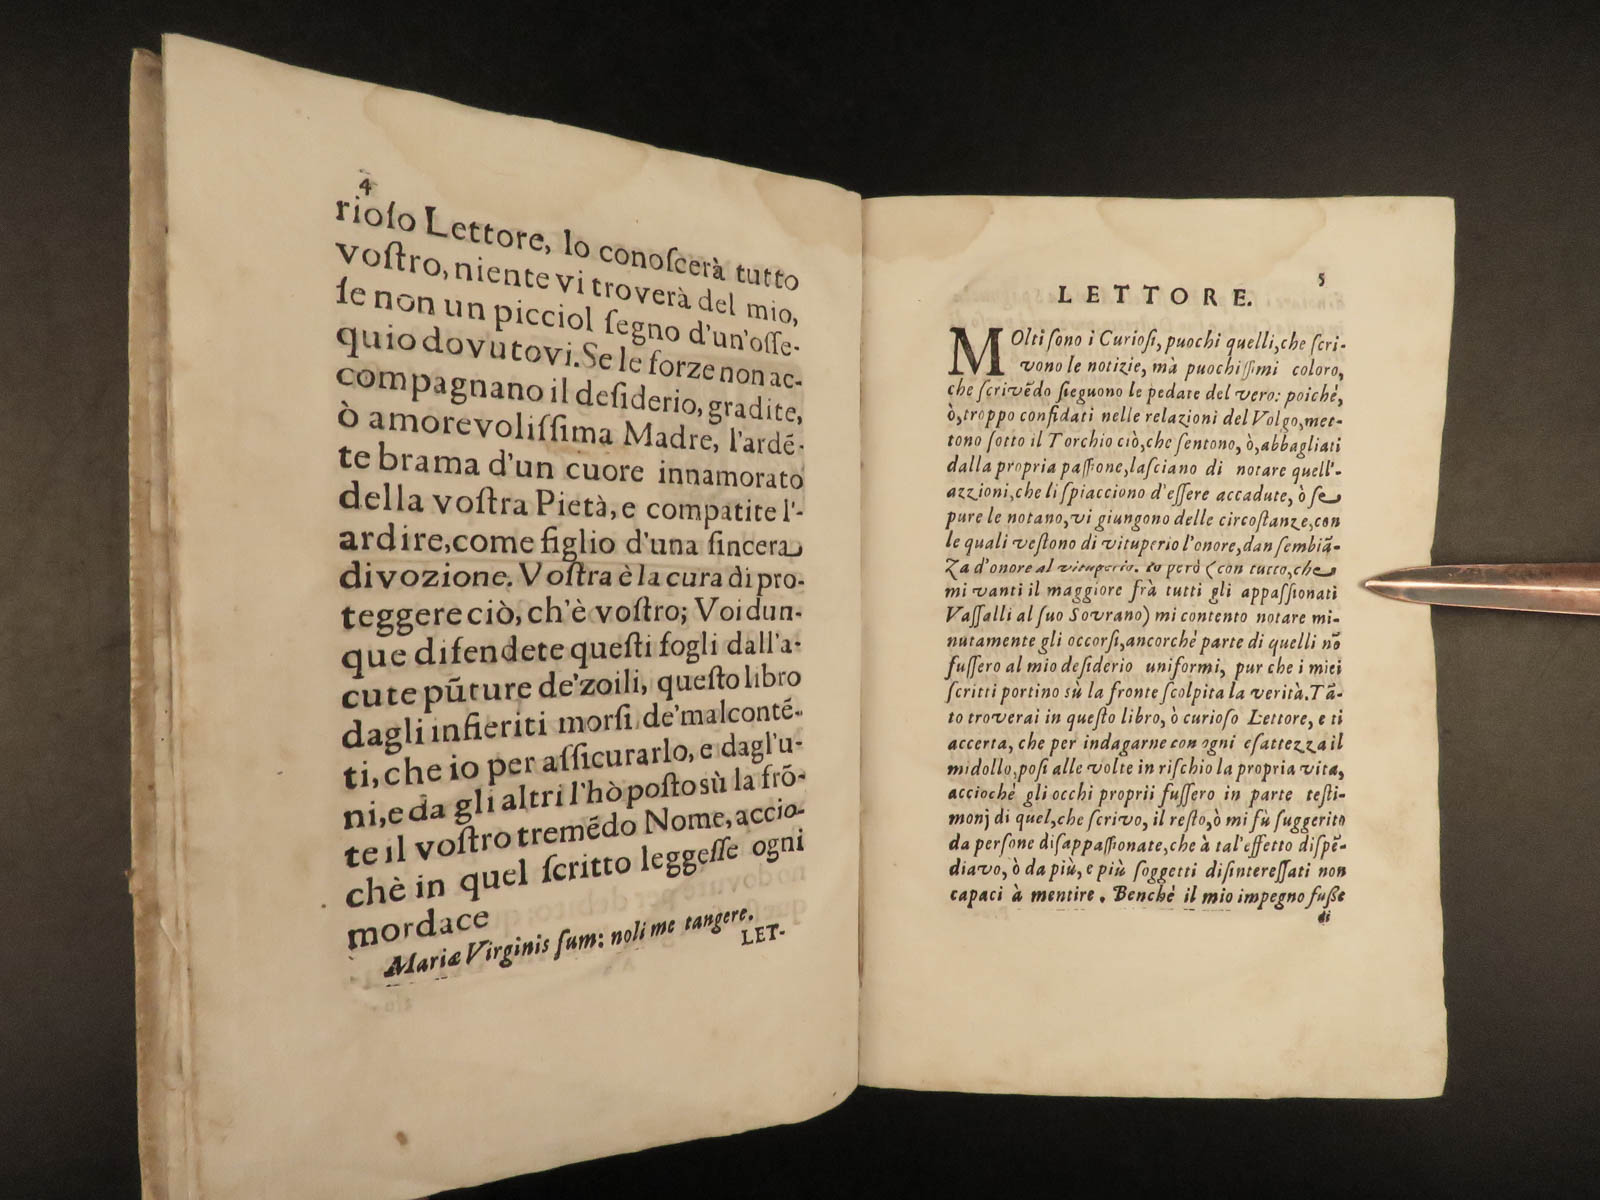 4
rioſo Lettore, lo conoſcerà tutto
voſtro, niente vi troverà del mio,
ſe non un picciol ſegno d'un'oſſe-
quio dovutovi. Se le forze non ac-
compagnano il deſiderio, gradite,
ò amorevoliſſima Madre, l'ardẽ-
te brama d'un cuore innamorato
della voſtra Pietà, e compatite l'-
ardire, come figlio d'una ſincera
divozione. Voſtra è la cura di pro-
teggere ciò, ch'è voſtro; Voi dun-
que difendete queſti fogli dall'a-
cute pũture de'zoili, queſto libro
dagli infieriti morſi de'malcontẽ-
ti, che io per aſſicurarlo, e dagl'u-
ni, e da gli altri l'hò poſto sù la frõ-
te il voſtro tremẽdo Nome, accio-
chè in quel ſcritto leggeſſe ogni
mordace
Mariæ Virginis ſum: noli me tangere.
LET-
5
LETTORE.
MOlti ſono i Curioſi, puochi quelli, che ſcri-
vono le notizie, mà puochiſſimi coloro,
che ſcrivẽdo ſieguono le pedate del vero: poiché,
ò, troppo confidati nelle relazioni del Volgo, met-
tono ſotto il Torchio ciò, che ſentono, ò, abbagliati
dalla propria paſſione, laſciano di notare quell'-
azzioni, che li ſpiacciono d'eſſere accadute, ò ſe
pure le notano, vi giungono delle circoſtanze, con
le quali veſtono di vituperio l'onore, dan ſembiã-
za d'onore al vituperio. Io però (con tutto, che
mi vanti il maggiore frà tutti gli appaſſionati
Vaſſalli al ſuo Sovrano) mi contento notare mi-
nutamente gli occorſi, ancorché parte di quelli nõ
fuſſero al mio deſiderio uniformi, pur che i miei
ſcritti portino sù la fronte ſcolpita la verità. Tã-
to troverai in queſto libro, ò curioſo Lettore, e ti
accerta, che per indagarne con ogni eſattezza il
midollo, poſi alle volte in riſchio la propria vita,
acciochè gli occhi proprii fuſſero in parte teſti-
monj di quel, che ſcrivo, il reſto, ò mi fù ſuggerito
da perſone diſappaſſionate, che à tal'effetto diſpẽ-
diavo, ò da più, e più ſoggetti diſintereſſati non
capaci à mentire. Benché il mio impegno fuße
di